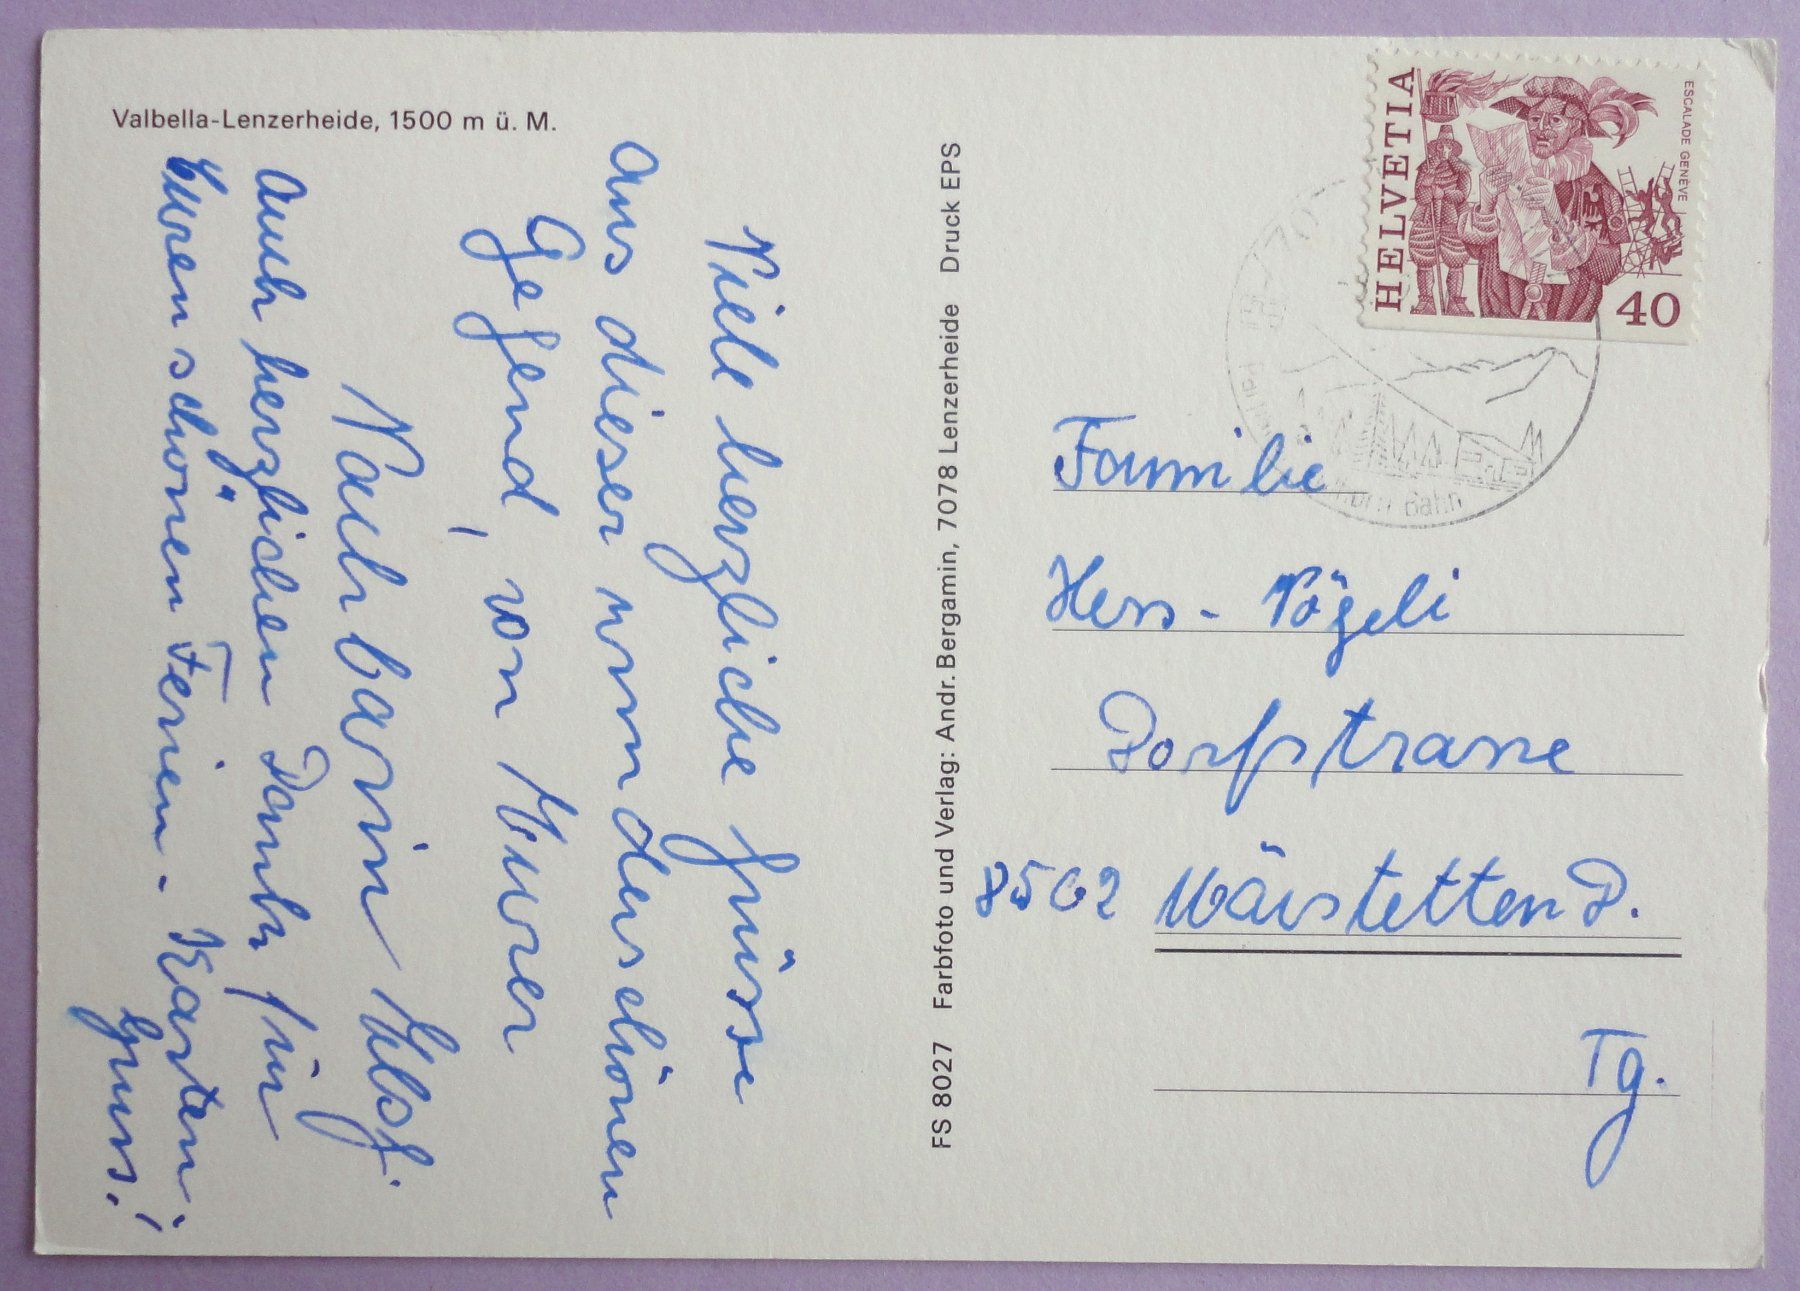 Valbella-Lenzerheide, 1500 m ü. M.
Viele herzliche Grüsse
aus dieser wunderschönen
Gegend, von Eurer
Nachbarin Elsj.
Auch herzlichen Dank für
Euren schönen Ferien-Karten
Gruss!
FS 8027 Farbfoto und Verlag: Andr. Bergamin, 7078 Lenzerheide Druck EPS
HELVETIA
ESCALADE GENÈVE
40
Bahn
Familie
Hess-Vögeli
Dorfstrasse
8562 Märstetten D.
Tg.